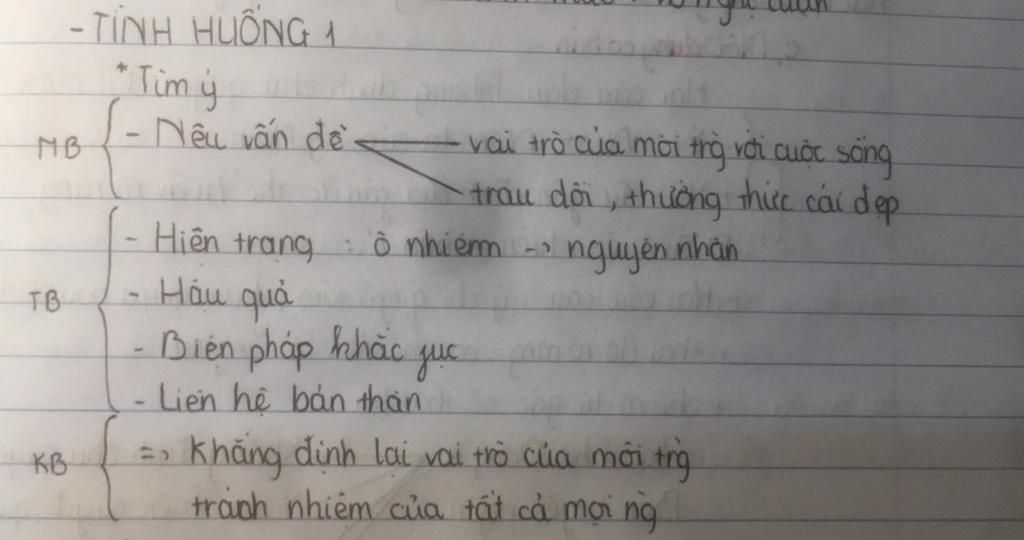 nghị luận
- TÌNH HUỐNG 1
* Tìm ý
MB - Nêu vấn đề vai trò của môi trg với cuộc sống
trau dồi, thưởng thức cái đẹp
- Hiện trạng : ô nhiễm -> nguyên nhân
TB - Hậu quả
- Biện pháp khắc fục
- Liên hệ bản thân
KB => Khẳng định lại vai trò của môi trg
trách nhiệm của tất cả mọi ng